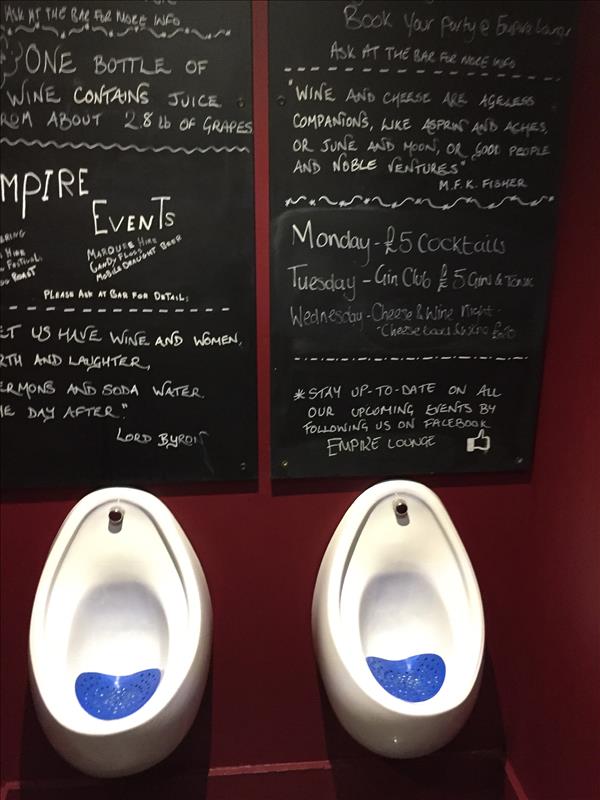 ASK AT THE BAR FOR MORE INFO
ONE BOTTLE OF
WINE CONTAINS JUICE
ROM ABOUT 2.8 lb OF GRAPES
MPIRE
EVENTS
RING
HIRE
FESTIVAL
ROAST
MARQUEE HIRE
CANDY FLOSS
MOBILE DRAUGHT BEER
PLEASE ASK AT BAR FOR DETAIL:
ET US HAVE WINE AND WOMEN,
RTH AND LAUGHTER,
ERMONS AND SODA WATER
E DAY AFTER."
LORD BYRON
Book Your Party @ Empire Lounge
ASK AT THE BAR FOR MORE INFO
"WINE AND CHEESE ARE AGELESS
COMPANIONS, LIKE ASPRIN AND ACHES,
OR JUNE AND MOON, OR GOOD PEOPLE
AND NOBLE VENTURES"
M.F.K. FISHER
Monday - £5 Cocktails
Tuesday - Gin Club £5 Gin & Tonic
Wednesday - Cheese & Wine Night -
Cheese board & wine £20
* STAY UP-TO-DATE ON ALL
OUR UPCOMING EVENTS BY
FOLLOWING US ON FACEBOOK
EMPIRE LOUNGE